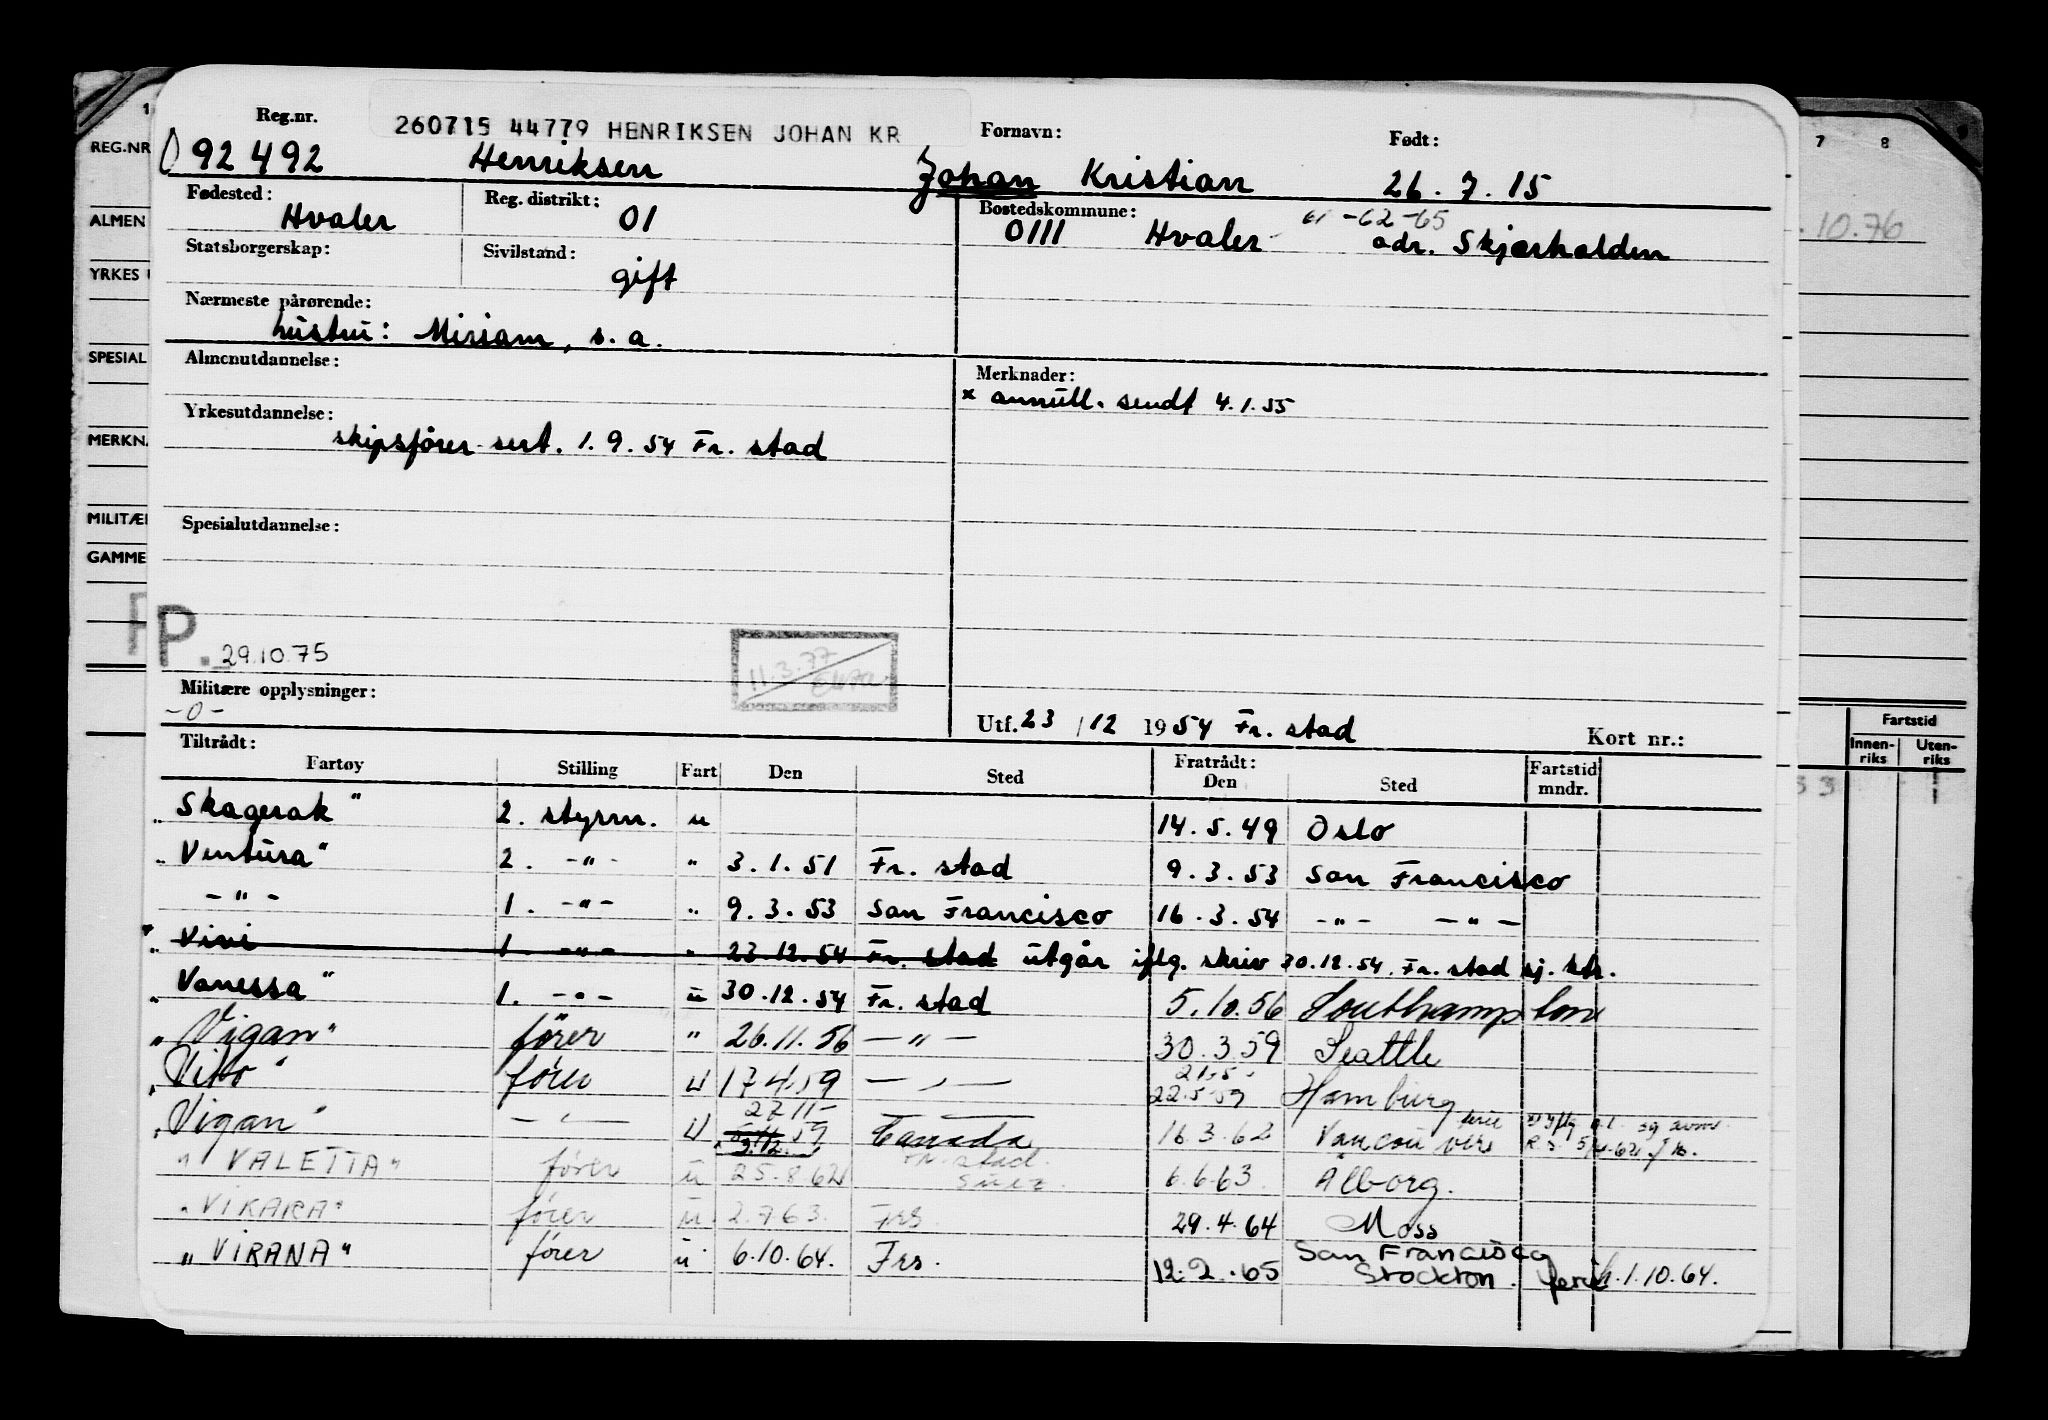 260715 44779 HENRIKSEN JOHAN KR
Reg.nr. Fornavn: Født:
92492 Henriksen Johan Kristian 26.7.15
Fødested: Hvaler Reg. distrikt: 01 Bostedskommune: 0111 Hvaler 61-62-65 adr. Skjærhalden
Statsborgerskap: Sivilstand: gift
Nærmeste pårørende:
hustru: Miriam, s.a.
Almenutdannelse: Merknader:
x annull. sendt 4.1.55
Yrkesutdannelse:
skipsfører sert. 1.9.54 Fr. stad
Spesialutdannelse:
P. 29.10.75
11.3.77
Militære opplysninger:
-0-
Utf. 23/12 1954 Fr. stad Kort nr.:
Tiltrådt: Fratrådt:
Fartøy Stilling Fart Den Sted Den Sted Fartstid mndr.
„Skagerak" 2. styrm. u 14.5.49 Oslo
„Ventura" 2. -"- " 3.1.51 Fr. stad 9.3.53 San Francisco
-"- 1. -"- " 9.3.53 San Francisco 16.3.54 -"- -"-
x „Vivi 1. -"- " 23.12.54 Fr. stad utgår iflg. skriv 30.12.54 Fr. stad sj. ktr.
„Vanessa" 1. -"- u 30.12.54 Fr. stad 5.10.56 Southampton
„Vigan" fører " 26.11.56 -"- 30.3.59 Seattle
„Vito" fører u 17.4.59 -"- 21.5. 22.5.59 Hamburg
„Vigan" -"- u 27.11- 59 3.12. Canada 16.3.62 Vancouver
„VALETTA" fører u 25.8.62 Fr. stad. Suez. 6.6.63. Ålborg.
„VIKARA" fører u. 2.7.63. Frs. 29.4.64 Moss
„VIRANA" fører u. 6.10.64. Frs. 12.2.65 San Francisco Stockton. ferie fr. 1.10.64.
1
REG.NR
ALMEN
YRKES U
SPESIAL
MERKNA
MILITÆR
GAMME
7 8
.10.76
Fartstid
Innen-riks Uten-riks